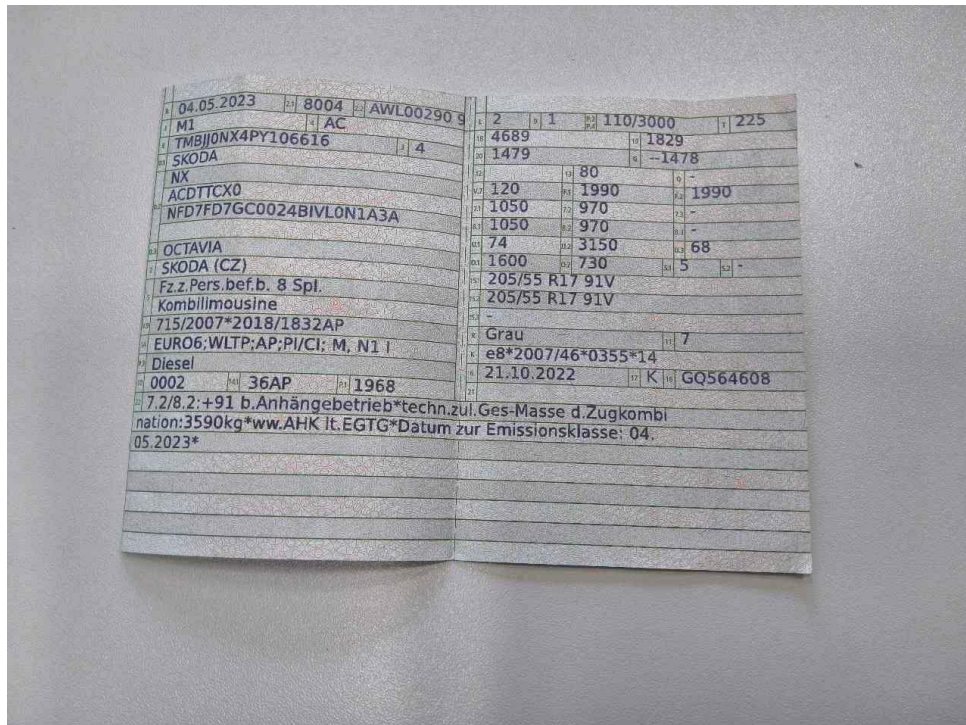 04.05.2023 8004 AWL00290 9
M1 AC
TMBJJ0NX4PY106616 4
SKODA
NX
ACDTTCX0
NFD7FD7GC0024BIVL0N1A3A
OCTAVIA
SKODA (CZ)
Fz.z.Pers.bef.b. 8 Spl.
Kombilimousine
715/2007*2018/1832AP
EURO6;WLTP;AP;PI/CI; M, N1 I
Diesel
0002 36AP 1968
2 1 110/3000 225
4689 1829
1479 --1478
80 -
120 1990 1990
1050 970 -
1050 970 -
74 3150 68
1600 730 5 -
205/55 R17 91V
205/55 R17 91V
-
Grau 7
e8*2007/46*0355*14
21.10.2022 K GQ564608
7.2/8.2:+91 b.Anhängebetrieb*techn.zul.Ges-Masse d.Zugkombi
nation:3590kg*ww.AHK lt.EGTG*Datum zur Emissionsklasse: 04.
05.2023*